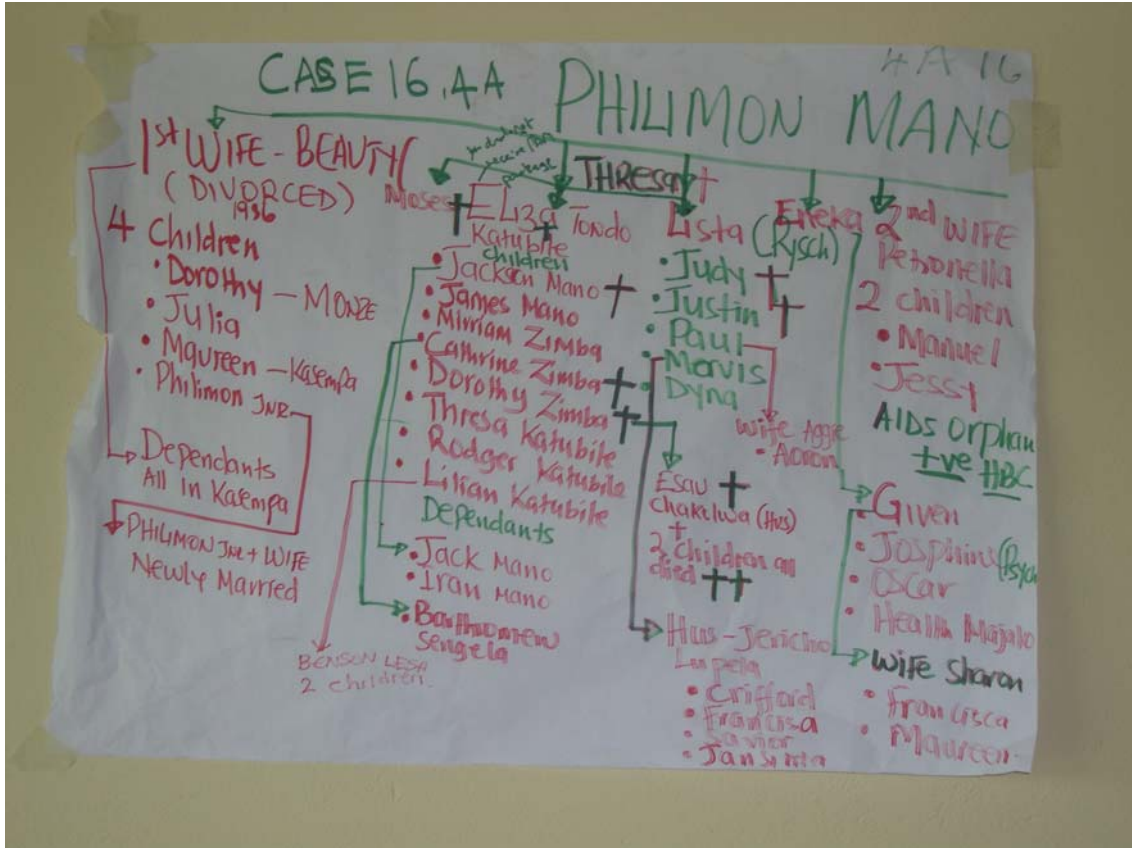 4A 16
CASE 16.4A PHILIMON MANO
1st WIFE - BEAUTY (
(DIVORCED)
1936
4 Children
• Dorothy - MONZE
• Julia
• Maureen - Kasempa
• Philimon JNR
Dependants
All In Kasempa
PHILIMON JNR + WIFE
Newly Married
package
THRESA
Moses
Eliza Tondo
Katubile
children
• Jackson Mano
• James Mano
• Mirriam Zimba
• Cathrine Zimba
• Dorothy Zimba
• Thresa Katubile
• Rodger Katubile
• Lilian Katubile
Dependants
• Jack Mano
• Iran Mano
• Barthromew
Sengela
BENSON LESA
2 children.
Lista
• Judy
• Justin
• Paul
• Mervis
• Dyna
Wife Aggie
• Aaron
Esau
Chakelwa (Hus)
+
children all
died
Hus - Jericho
Lupela
• Crifford
• Francisa
• Savior
Eneka
2nd WIFE
Petronella
2 children
• Manuel
• Jessy
AIDS orphan
+ve HBC
• Given
• Josphins (Psych
• Oscar
• Health Majalo
Wife Sharon
• Francisca
• Maureen